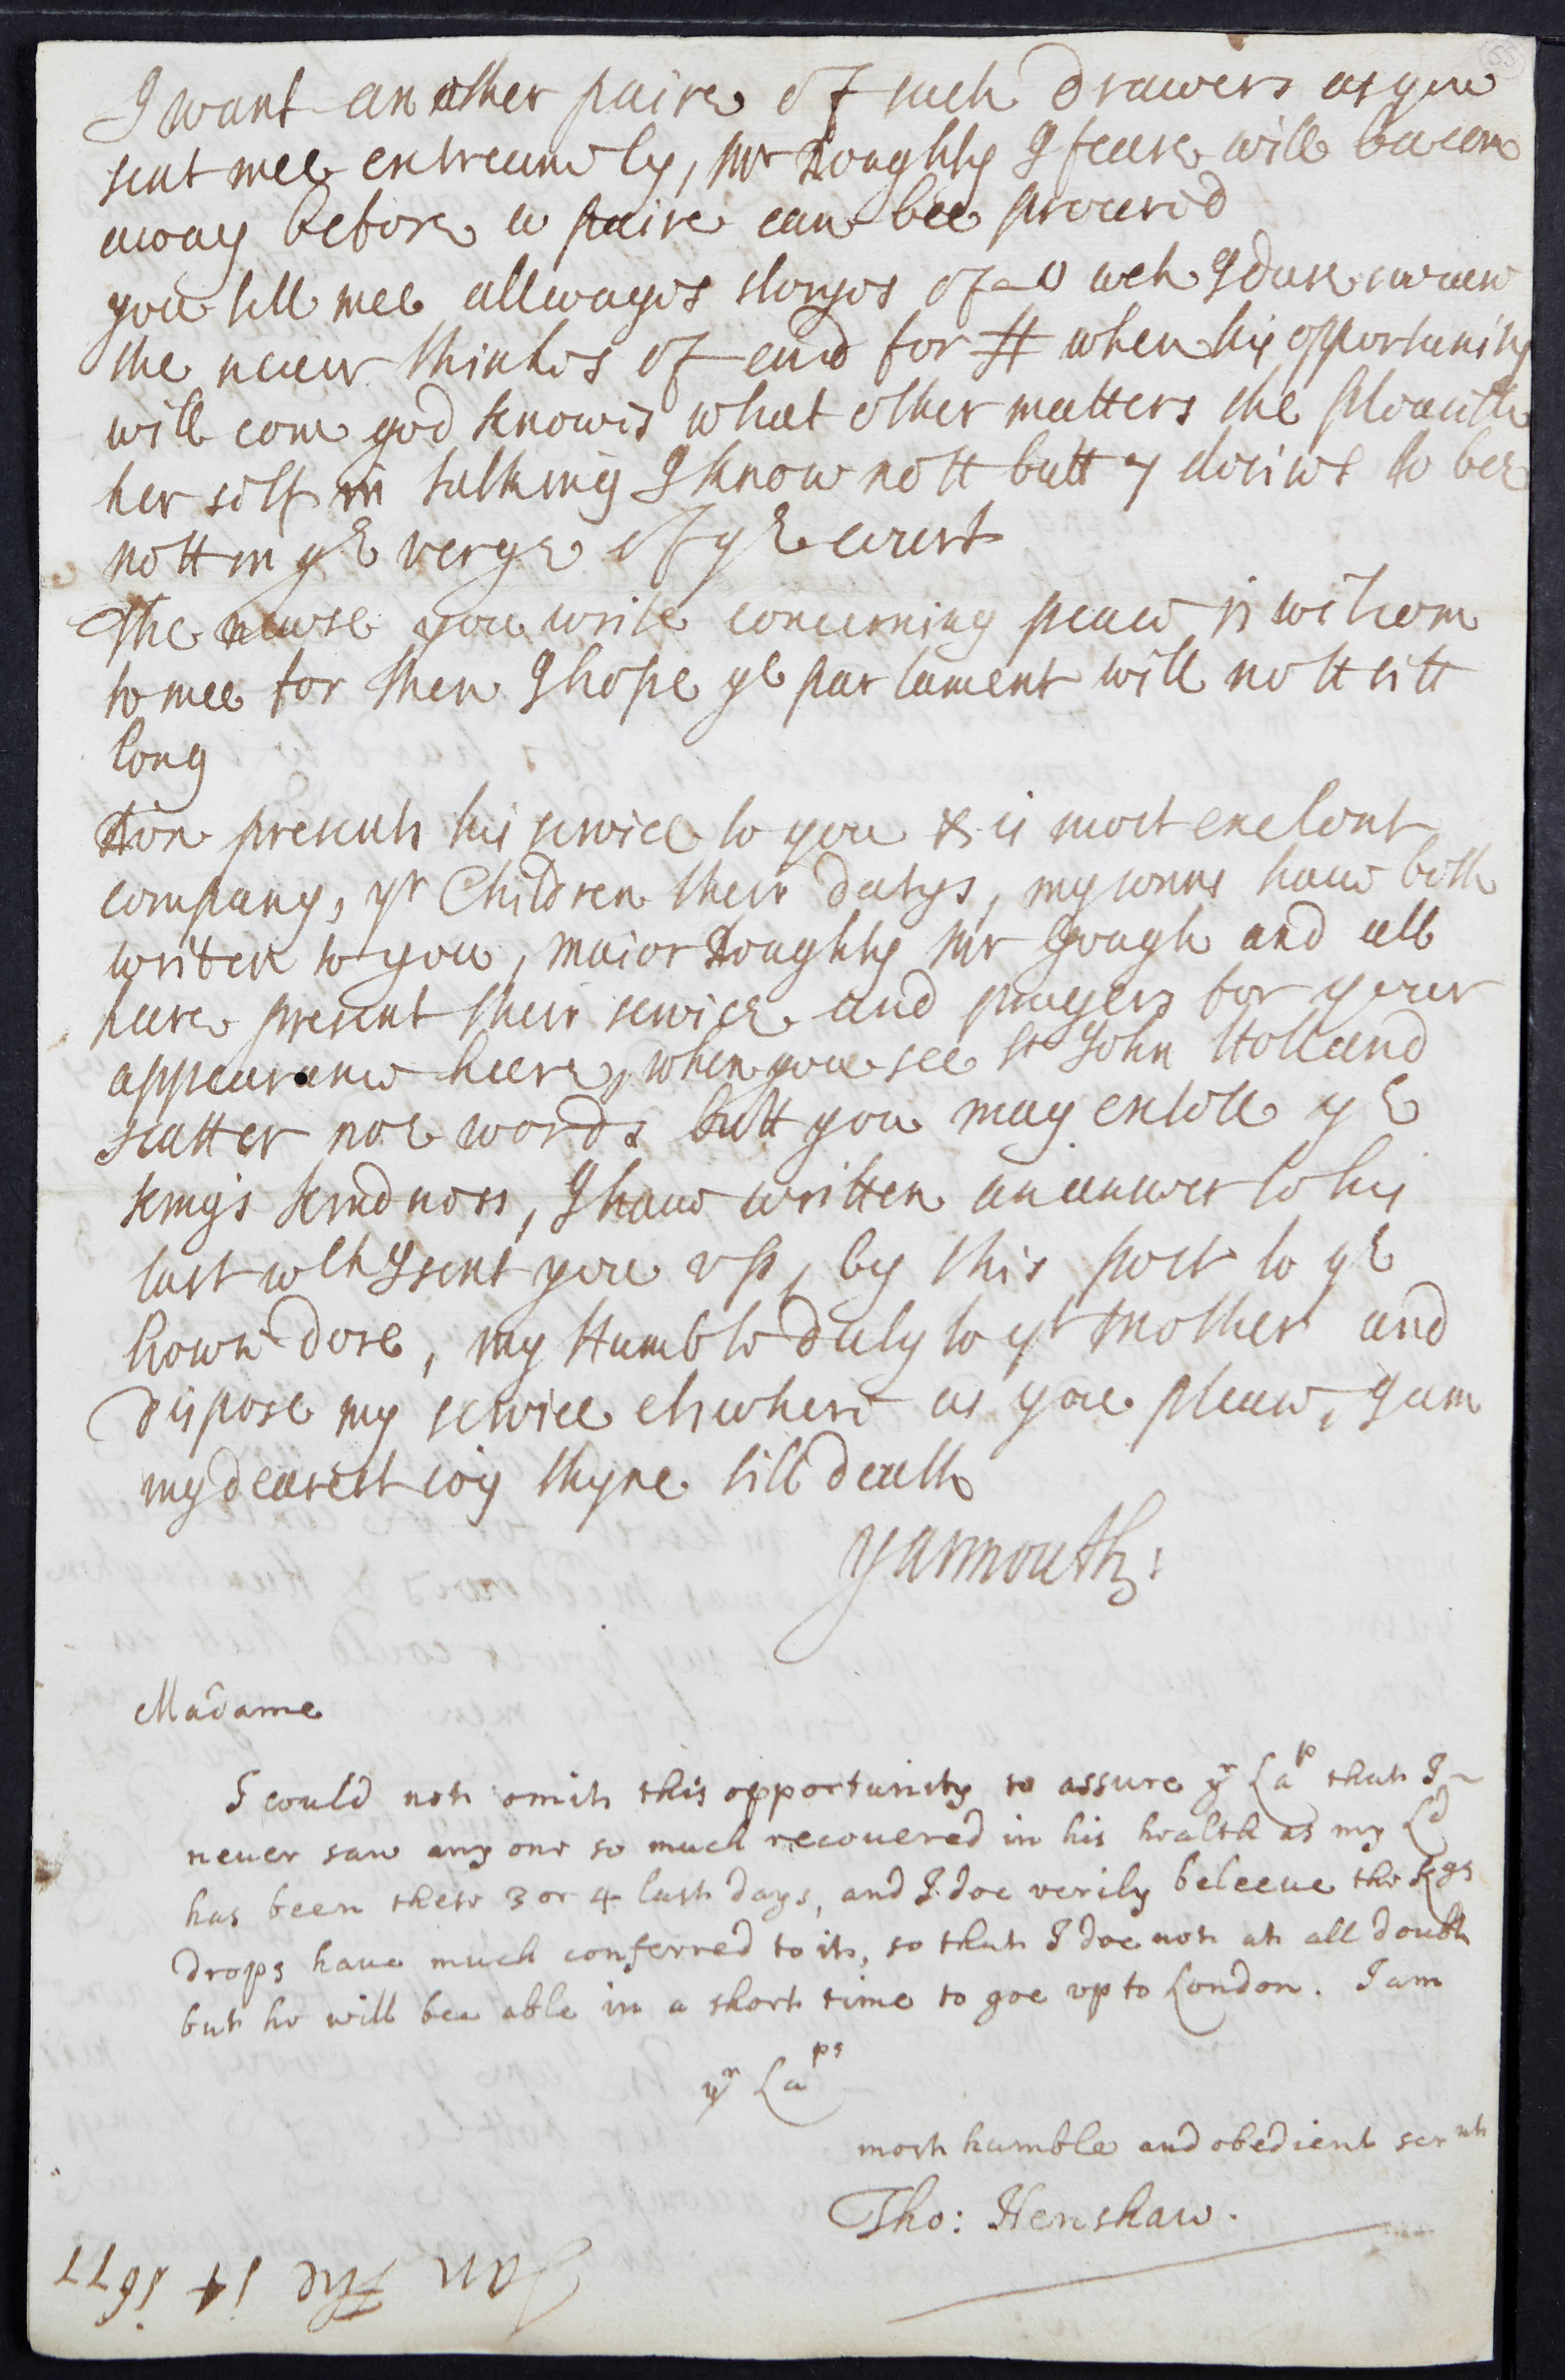 I want an other paire of such drawers as you
sent mee extreamly, Mr Doughty I feare will bee com
away before a paire can bee procured
you tell mee allwayes storyes of
she never thinkes of end for # when his opportunity
will come god knowes what other matters she
her self in talking I know nott butt desires to bee
nott in ye verge of ye court
The newse you write concerning peace is wellcom
to mee for then I hope ye parlament will nott sitt
long
presents his service to you & is most exelent
company, yr Children their dutys, my sonns have both
written to you, maior Doughty Mr Gough and all
heere present their service and prayers for your
appearance heere, when you see Sr John Holland
scatter noe words butt you may extoll ye
kings kindness, I have written an answer to his
last wch I sent you vp, by this post to ye
howse dore, my Humble duty to yr Mother and
dispose my service elswhere as you please, I am
my dearest ioy thyne till death
Yarmouth:
Madame
I could not omit this opportunity to assure yr Lap that I
neuer saw any one so much recouered in his health as my Ld
has been these 3 or 4 last days, and I doe verily beleeue the Kgs
drops haue much conferred to it, so that I doe not at all doubt
but he will bee able in a short time to goe vp to London. I am
yr Laps
most humble and obedient sernt
Tho: Henshaw.
Jan the 14 1677